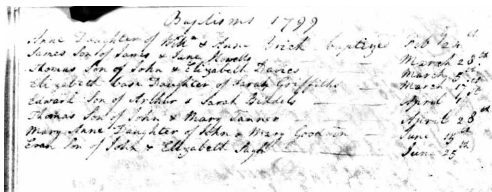 Baptisms 1799
Anne Daughter of Willm & Anne Brick baptized Feb 24th
James Son of James & Jane Howells March 28th
Thomas Son of John & Elizabeth Davies March
Elizabeth Base Daughter of Sarah Griffiths March 17th
Edward Son of Arthur & Sarah April
Thomas Son of John & Mary Tanner April 28th
Mary Anne Daughter of John & Mary Goodwin June 15th
Evan Son of John & Elizabeth Pugh June 25th